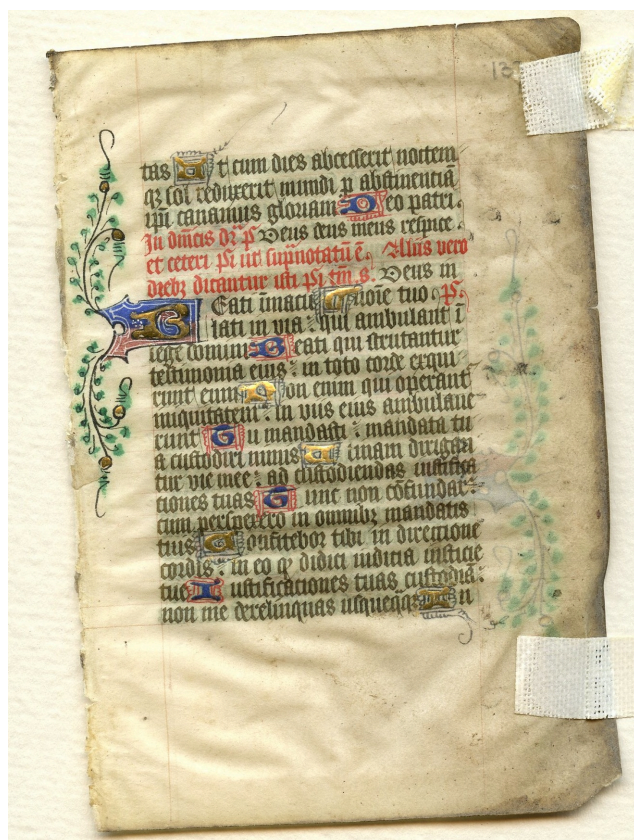 137
tas Ut cum dies abcesserit noctem
qz sol reduxerit mundi p abstinentiā
ipi canamus gloriam Deo patri.
In dn̄icis dr̄ ps Deus deus meus respice.
et ceteri ps̄i ut sup̄notatū ē. Aliis vero
diebz dicantur isti ps̄i tm̄. s. Deus in
Beati īmacu noīe tuo. ps.
lati in via: qui ambulant ī
lege domini Beati qui scrutantur
testimonia eius: in toto corde exqui
runt eum Non enim qui operant
iniquitatem: in viis eius ambulaue
runt Tu mandasti: mandata tu
a custodiri nimis Utinam dirigan
tur vie mee: ad custodiendas iustifica
tiones tuas Tunc non cōfundar:
cum perspexero in omnibz mandatis
tuis Confitebor tibi in directione
cordis: in eo qz didici iudicia iusticie
tue Iustificationes tuas custodiā:
non me derelinquas usqueqz In